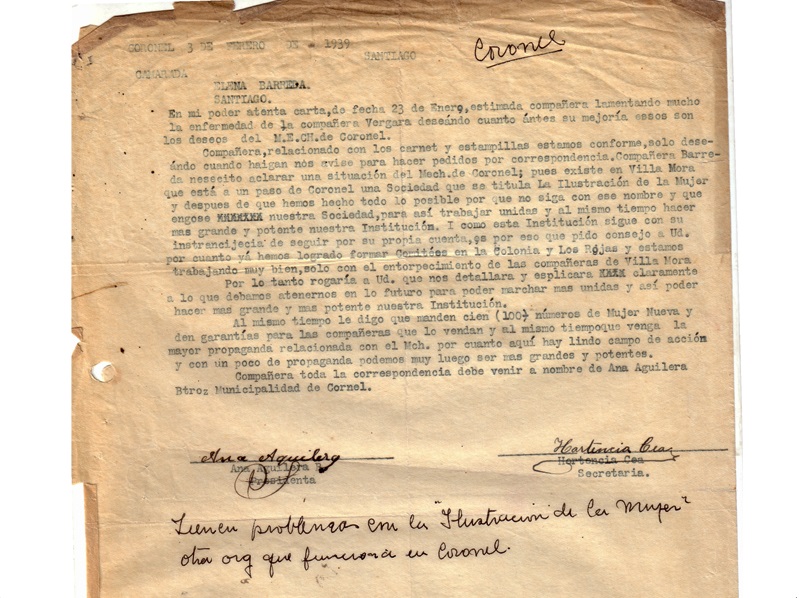 CORONEL 3 DE FEBERO DE 1939
SANTIAGO
Coronel
CAMARADA
ELENA BARREDA.
SANTIAGO.
En mi poder atenta carta,de fecha 23 de Enero,estimada compañera lamentando mucho
la enfermedad de la compañera Vergara deseándo cuanto ántes su mejoría essos son
los deseos del M.E.CH.de Coronel.
Compañera,relacionado con los carnet y estampillas estamos conforme,solo dese-
ándo cuando haigan nos avise para hacer pedidos por correspondencia.Compañera Barre-
da nessecito aclarar una situación del Mech.de Coronel; pues existe en Villa Mora
que está a un paso de Coronel una Sociedad que se titula La Ilustración de la Mujer
y despues de que hemos hecho todo lo posible por que no siga con ese nombre y que
engóse nuestra Sociedad,para así trabajar unidas y al mismo tiempo hacer
mas grande y potente nuestra Institución. I como esta Institución sigue con su
instrancijecia de seguir por su propia cuenta,es por eso que pido consejo a Ud.
por cuanto yá hemos logrado formar Comitées en la Colonia y Los Rójas y estamos
trabajando muy bien,solo con el entorpecimiento de las compañeras de Villa Mora
Por lo tanto rogaría a Ud. que nos detallara y esplicara claramente
a lo que debamos atenernos en lo futuro para poder marchar mas unidas y así poder
hacer mas grande y mas potente nuestra Institución.
Al mismo tiempo le digo que manden cien (100) números de Mujer Nueva y
den garantías para las compañeras que lo vendan y al mismo tiempoque venga la
mayor propaganda relacionada con el Mch. por cuanto aquí hay lindo campo de acción
y con un poco de propaganda podemos muy luego ser mas grandes y potentes.
Compañera toda la correspondencia debe venir a nombre de Ana Aguilera
Btroz Municipalidad de Cornel.
Ana Aguilera
Hortencia Cea
Ana Aguilera B.
Hortencia Cea
Presidenta
Secretaria.
Tienen problemas con la "Ilustracion de la Mujer"
otra org que funciona en Coronel.